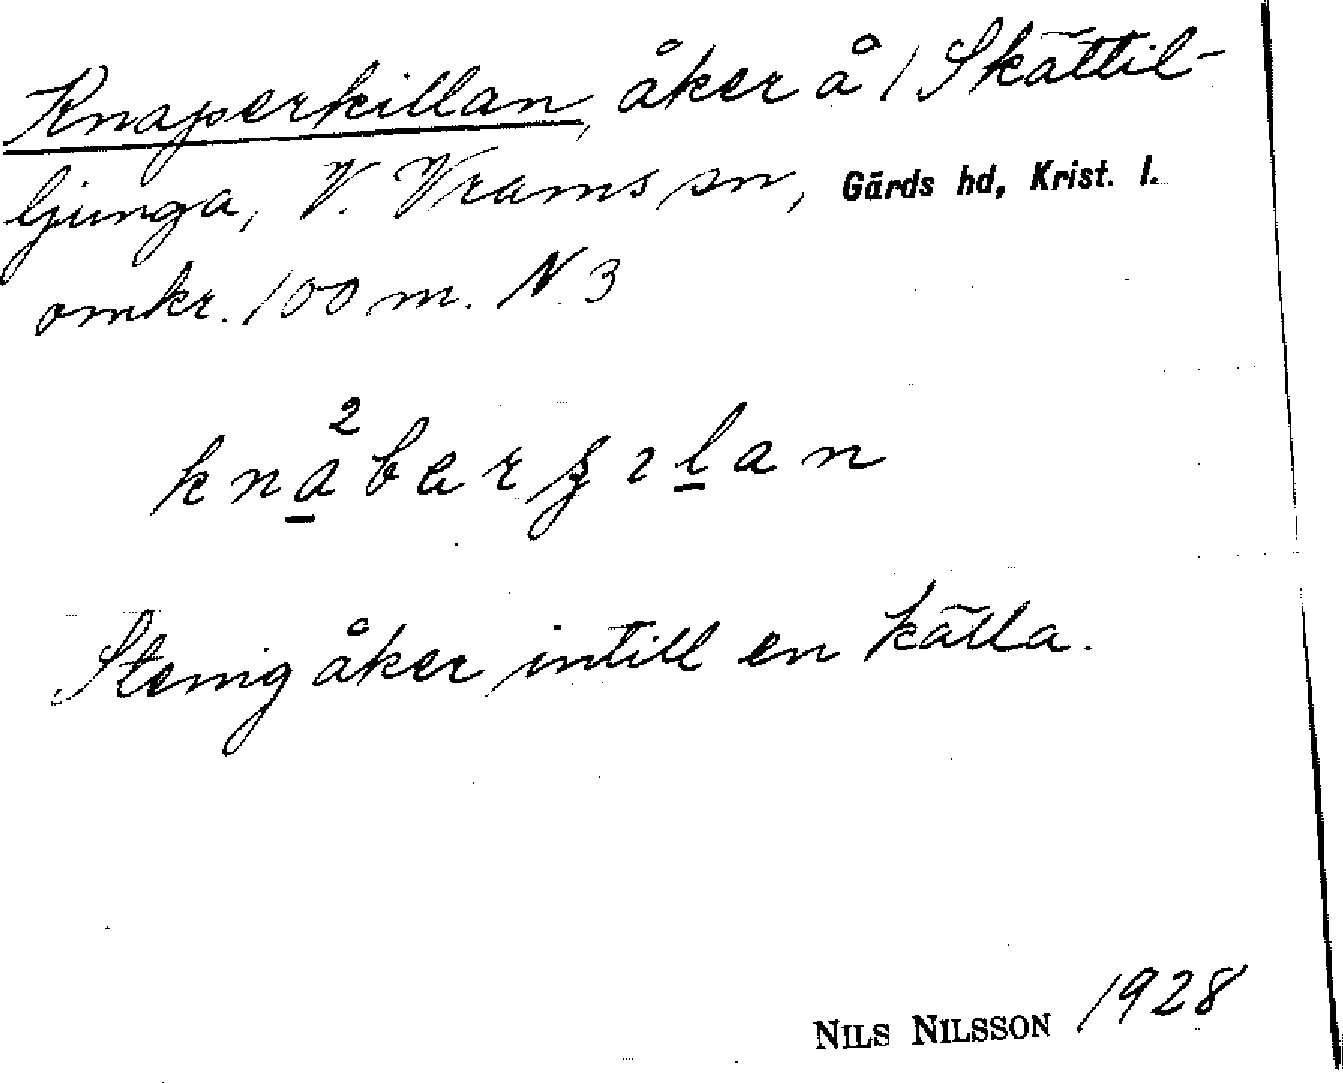 Knaperkillan, åker å 1 Skättil-
ljunga, V. Vrams sn, Gärds hd, Krist. l.
omkr. 100 m. N. 3
2
knabarʒılan
Stenig åker intill en källa.
NILS NILSSON 1928